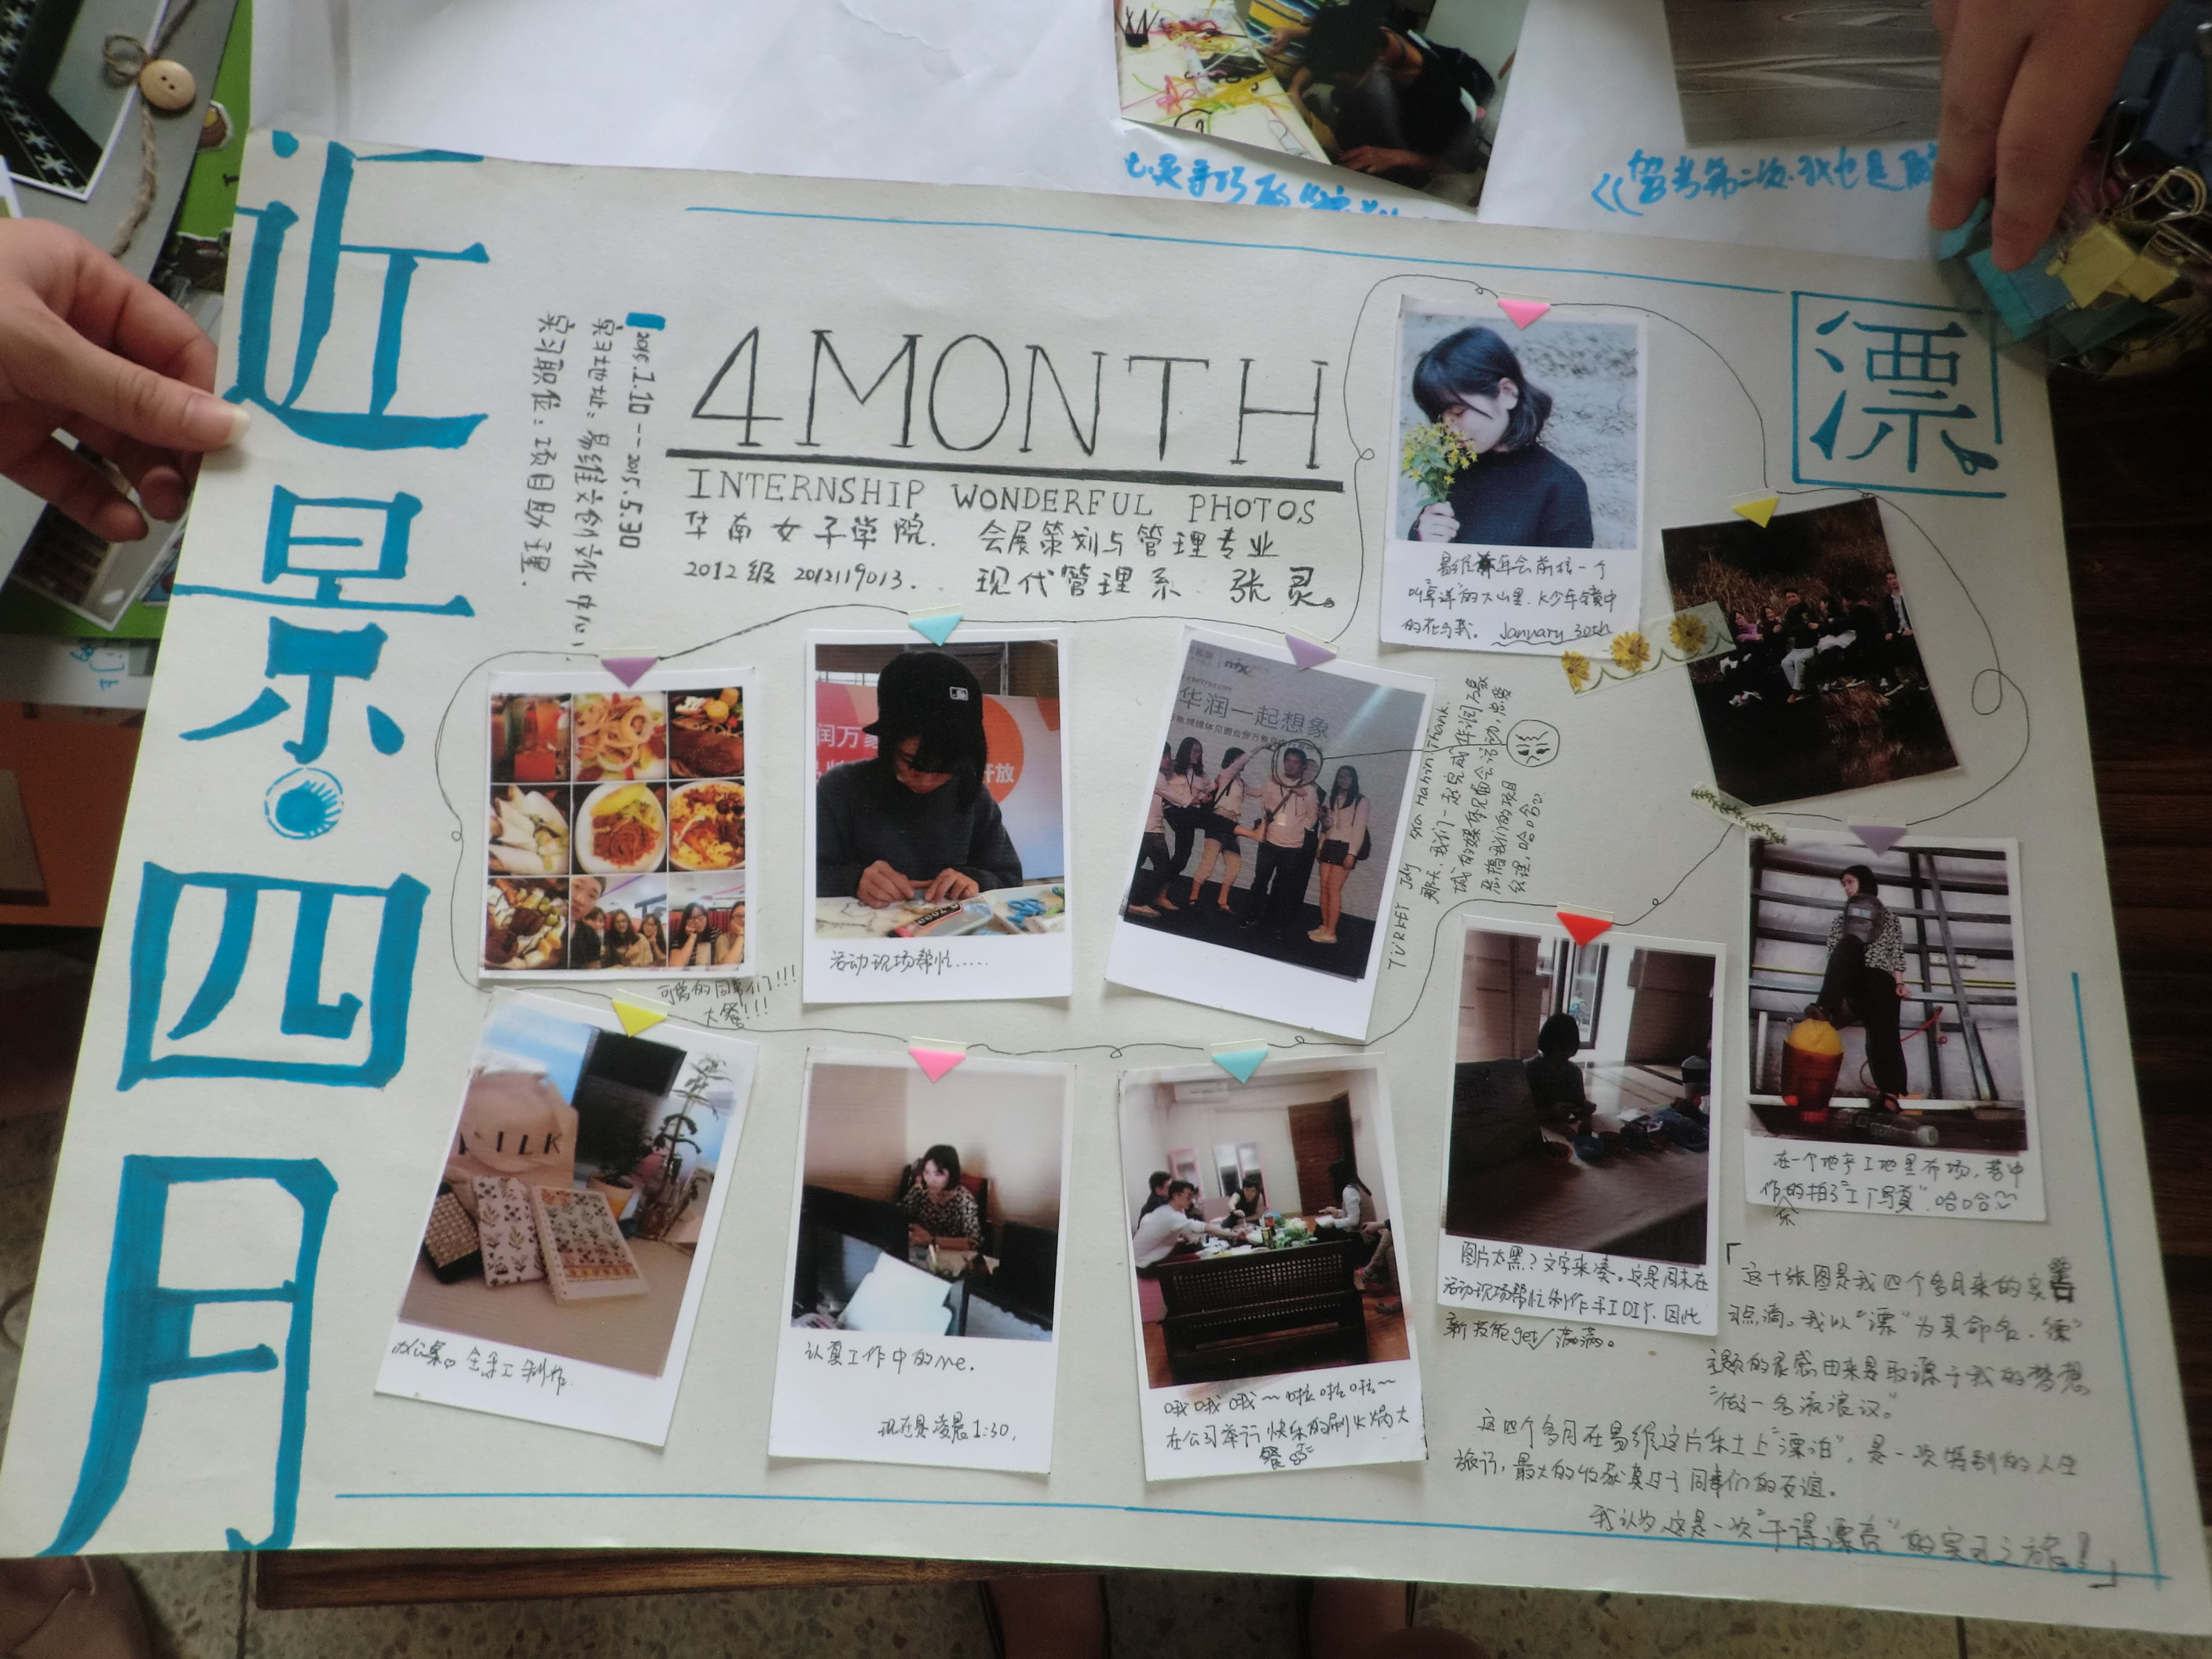 近景·四月
2015.1.10--2015.5.30
实习地址：易维文创文化中心
实习职位：项目助理.
4MONTH
INTERNSHIP WONDERFUL PHOTOS
华南女子学院. 会展策划与管理专业
2012级 2012119013. 现代管理系 张灵。
漂
叫"草洋"的大山里. K少年镜中
的花与我. January 30th
可爱的同事们!!!
大餐!!!
润万象
开放
活动现场帮忙......
华润一起想象
那天.我们一起完成华润万象
城的媒体见面会活动,点赞
恶搞我们的项目
经理,哈哈哈
MILK
办公桌 全手工制作.
认真工作中的me.
现在是凌晨1:30.
哦哦哦~啦啦啦~
在公司举行快乐的涮火锅大
餐
图片太黑？文字来凑。这是周末在
活动现场帮忙制作手工DIY.因此
新技能get/满满。
在一个地产工地里布场,苦中
作乐的拍了"工厂写真".哈哈哈~
「这十张图是我四个多月来的实
习点滴。我以"漂"为其命名."漂"
主题的灵感由来是取源于我的梦想
"做一名流浪汉"。
这四个多月在易维这片乐土上"漂泊"，是一次特别的人生
旅行，最大的收获莫过于同事们的友谊。
我认为这是一次"干得漂亮"的实习之旅！」